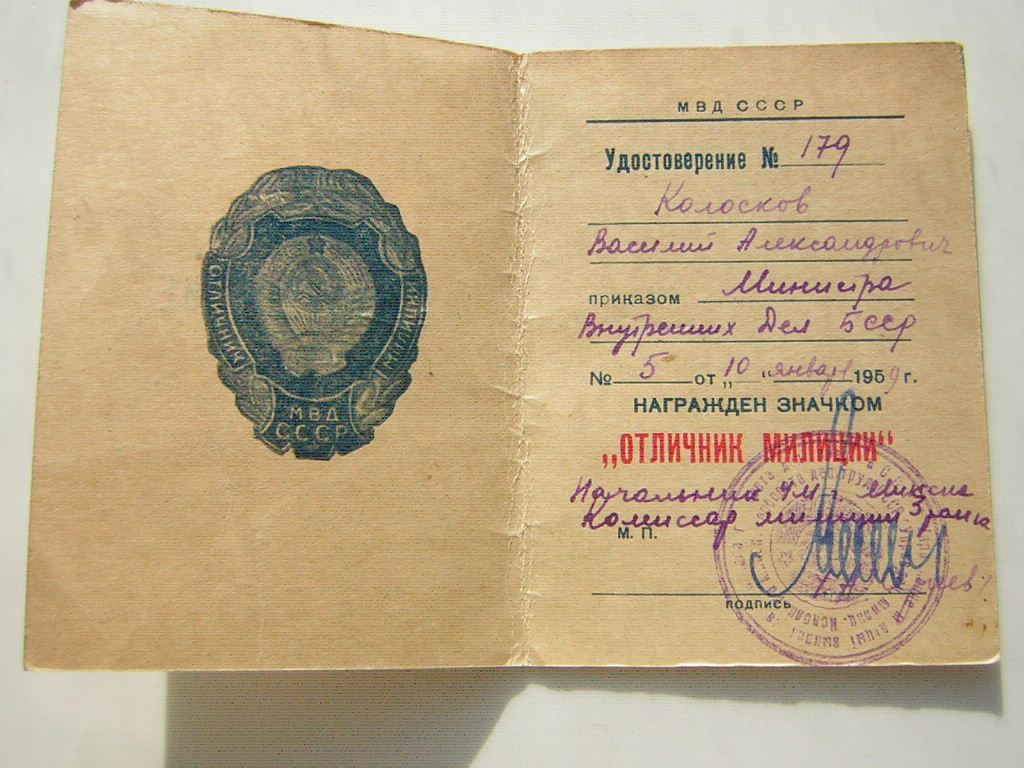 ОТЛИЧНИК МИЛИЦИИ
МВД
СССР
МВД СССР
Удостоверение № 179
Колосков
Василий Александрович
приказом Министра
Внутренних Дел БССР
№ 5 от „10" январе 1959 г.
НАГРАЖДЕН ЗНАЧКОМ
„ОТЛИЧНИК МИЛИЦИИ"
Начальник УМ г. Минска
Комиссар милиции 3 ранга
М. П.
подпись